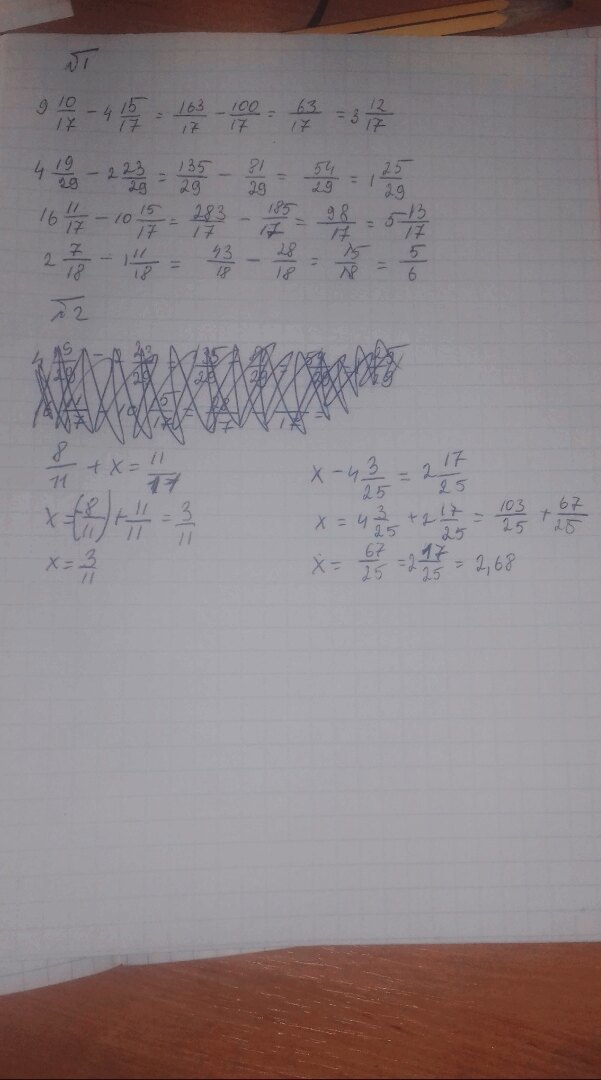 №1
9 10/17 - 4 15/17 = 163/17 - 100/17 = 63/17 = 3 12/17
4 19/29 - 2 23/29 = 135/29 - 81/29 = 54/29 = 1 25/29
16 11/17 - 10 15/17 = 283/17 - 185/17 = 98/17 = 5 13/17
2 7/18 - 1 11/18 = 43/18 - 28/18 = 15/18 = 5/6
№2
8/11 + x = 11/11
x = (-8/11) + 11/11 = 3/11
x = 3/11
x - 4 3/25 = 2 17/25
x = 4 3/25 + 2 17/25 = 103/25 + 67/25
x = 67/25 = 2 17/25 = 2,68